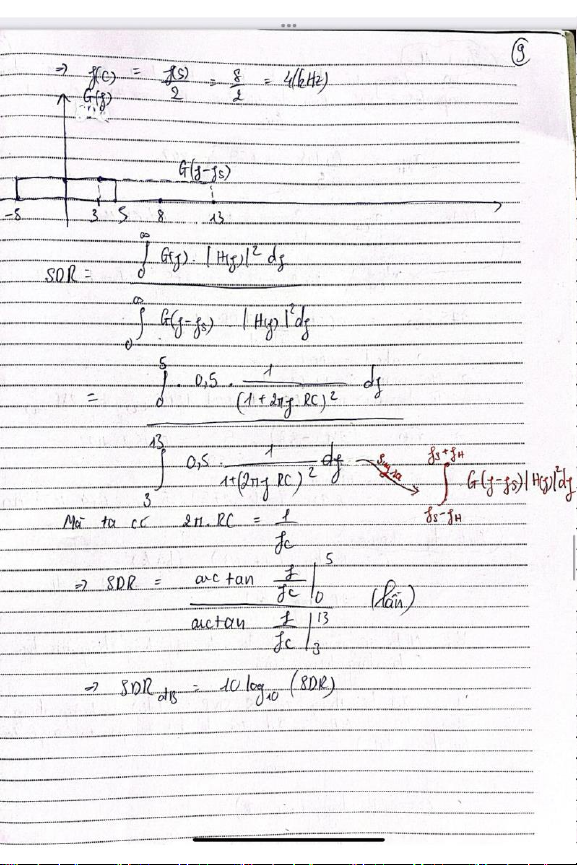 9
⇒ f(c) = f(s)/2 = 8/2 = 4(kHz)
G(f)
G(f-fs)
-5 3 5 8 13
SDR = ∫₀^∞ G(f). |H(f)|² df
∫₀^∞ G(f-fs) |H(f)|² df
= ∫₀⁵ 0,5 . 1/(1+2πf.RC)² df
∫₃¹³ 0,5 . 1/1+(2πf RC)² df → ∫_{fs-fH}^{fs+fH} G(f-fs)|H(f)|²df
Mà ta có 2π.RC = 1/fc
⇒ SDR = arctan f/fc |₀⁵ (lần)
arctan f/fc |₃¹³
⇒ SDR dB = 10 log₁₀ (SDR)